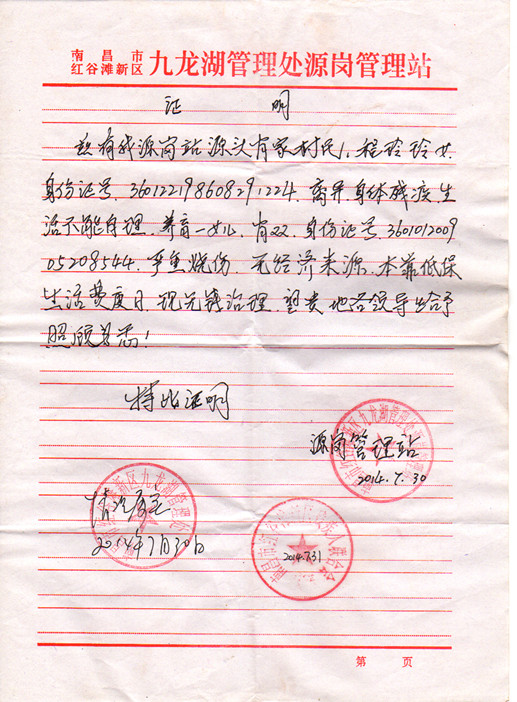 南昌市
红谷滩新区 九龙湖管理处源岗管理站
证 明
兹有我源岗站源头肖家村民,程玲玲女
身份证号,360122198608291224.离异身体残疾生
活不能自理.养育一女儿,肖双.身份证号.3601012009
05208544.严重烧伤.无经济来源.本靠低保
生活费度日.现无钱治理.望贵地各领导出给予
照顾为感!
特此证明
源岗管理站
2014.7.30
情况属实
2014年7月30日
2014.7.31
第 页